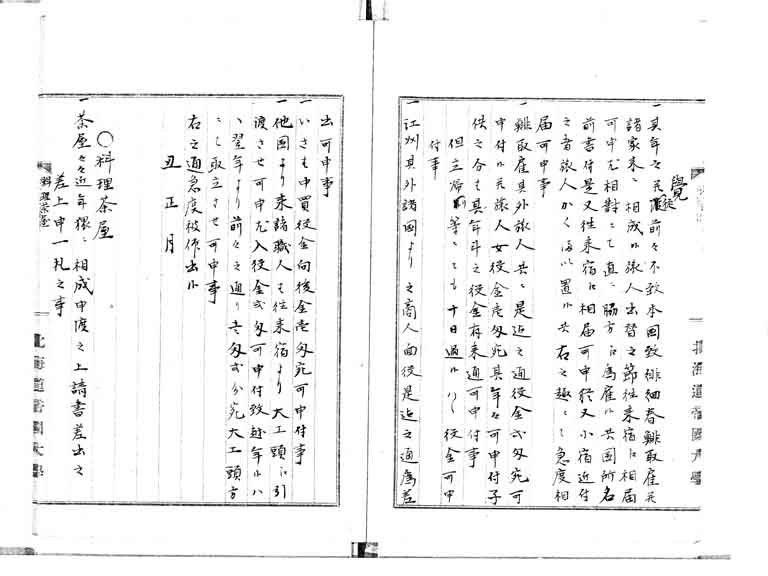 覺
一 其年之
諸家来ニ相成候旅人出替之節往来宿江相届
可申尤相対ニて直ニ脇方江為雇候共国所名
前書付是又往来宿江相届可申終又小宿近付
之者旅人かくし置候共右之趣ニて急度相
届可申事
一 鯡取雇其外旅人共ニ是迄之通役金弐匁宛可
申付候旅人女役金壱匁宛其年々可申付子
供之分も其年斗之役金有来通可申付事
但立帰等ニても十日過候ハヽ役金可申
付事
一 江州其外諸国より之商人面役是迄之通為差
出可申事
一 いさは申買役金向後金壱匁宛可申付事
一 他国より来諸職人も往来宿より大工頭江引
渡させ可申尤入役金弐匁可申付致越年候ハ
ヽ翌年より前々之通り壱匁弐分宛大工頭方
ニて取立させ可申事
右之通急度被仰出候
丑正月
〇料理茶屋
一 茶屋々々近年猥ニ相成申渡之上請書差出之
差上申一札之事
料理茶屋
北海道帝國大學
北海道帝國大學